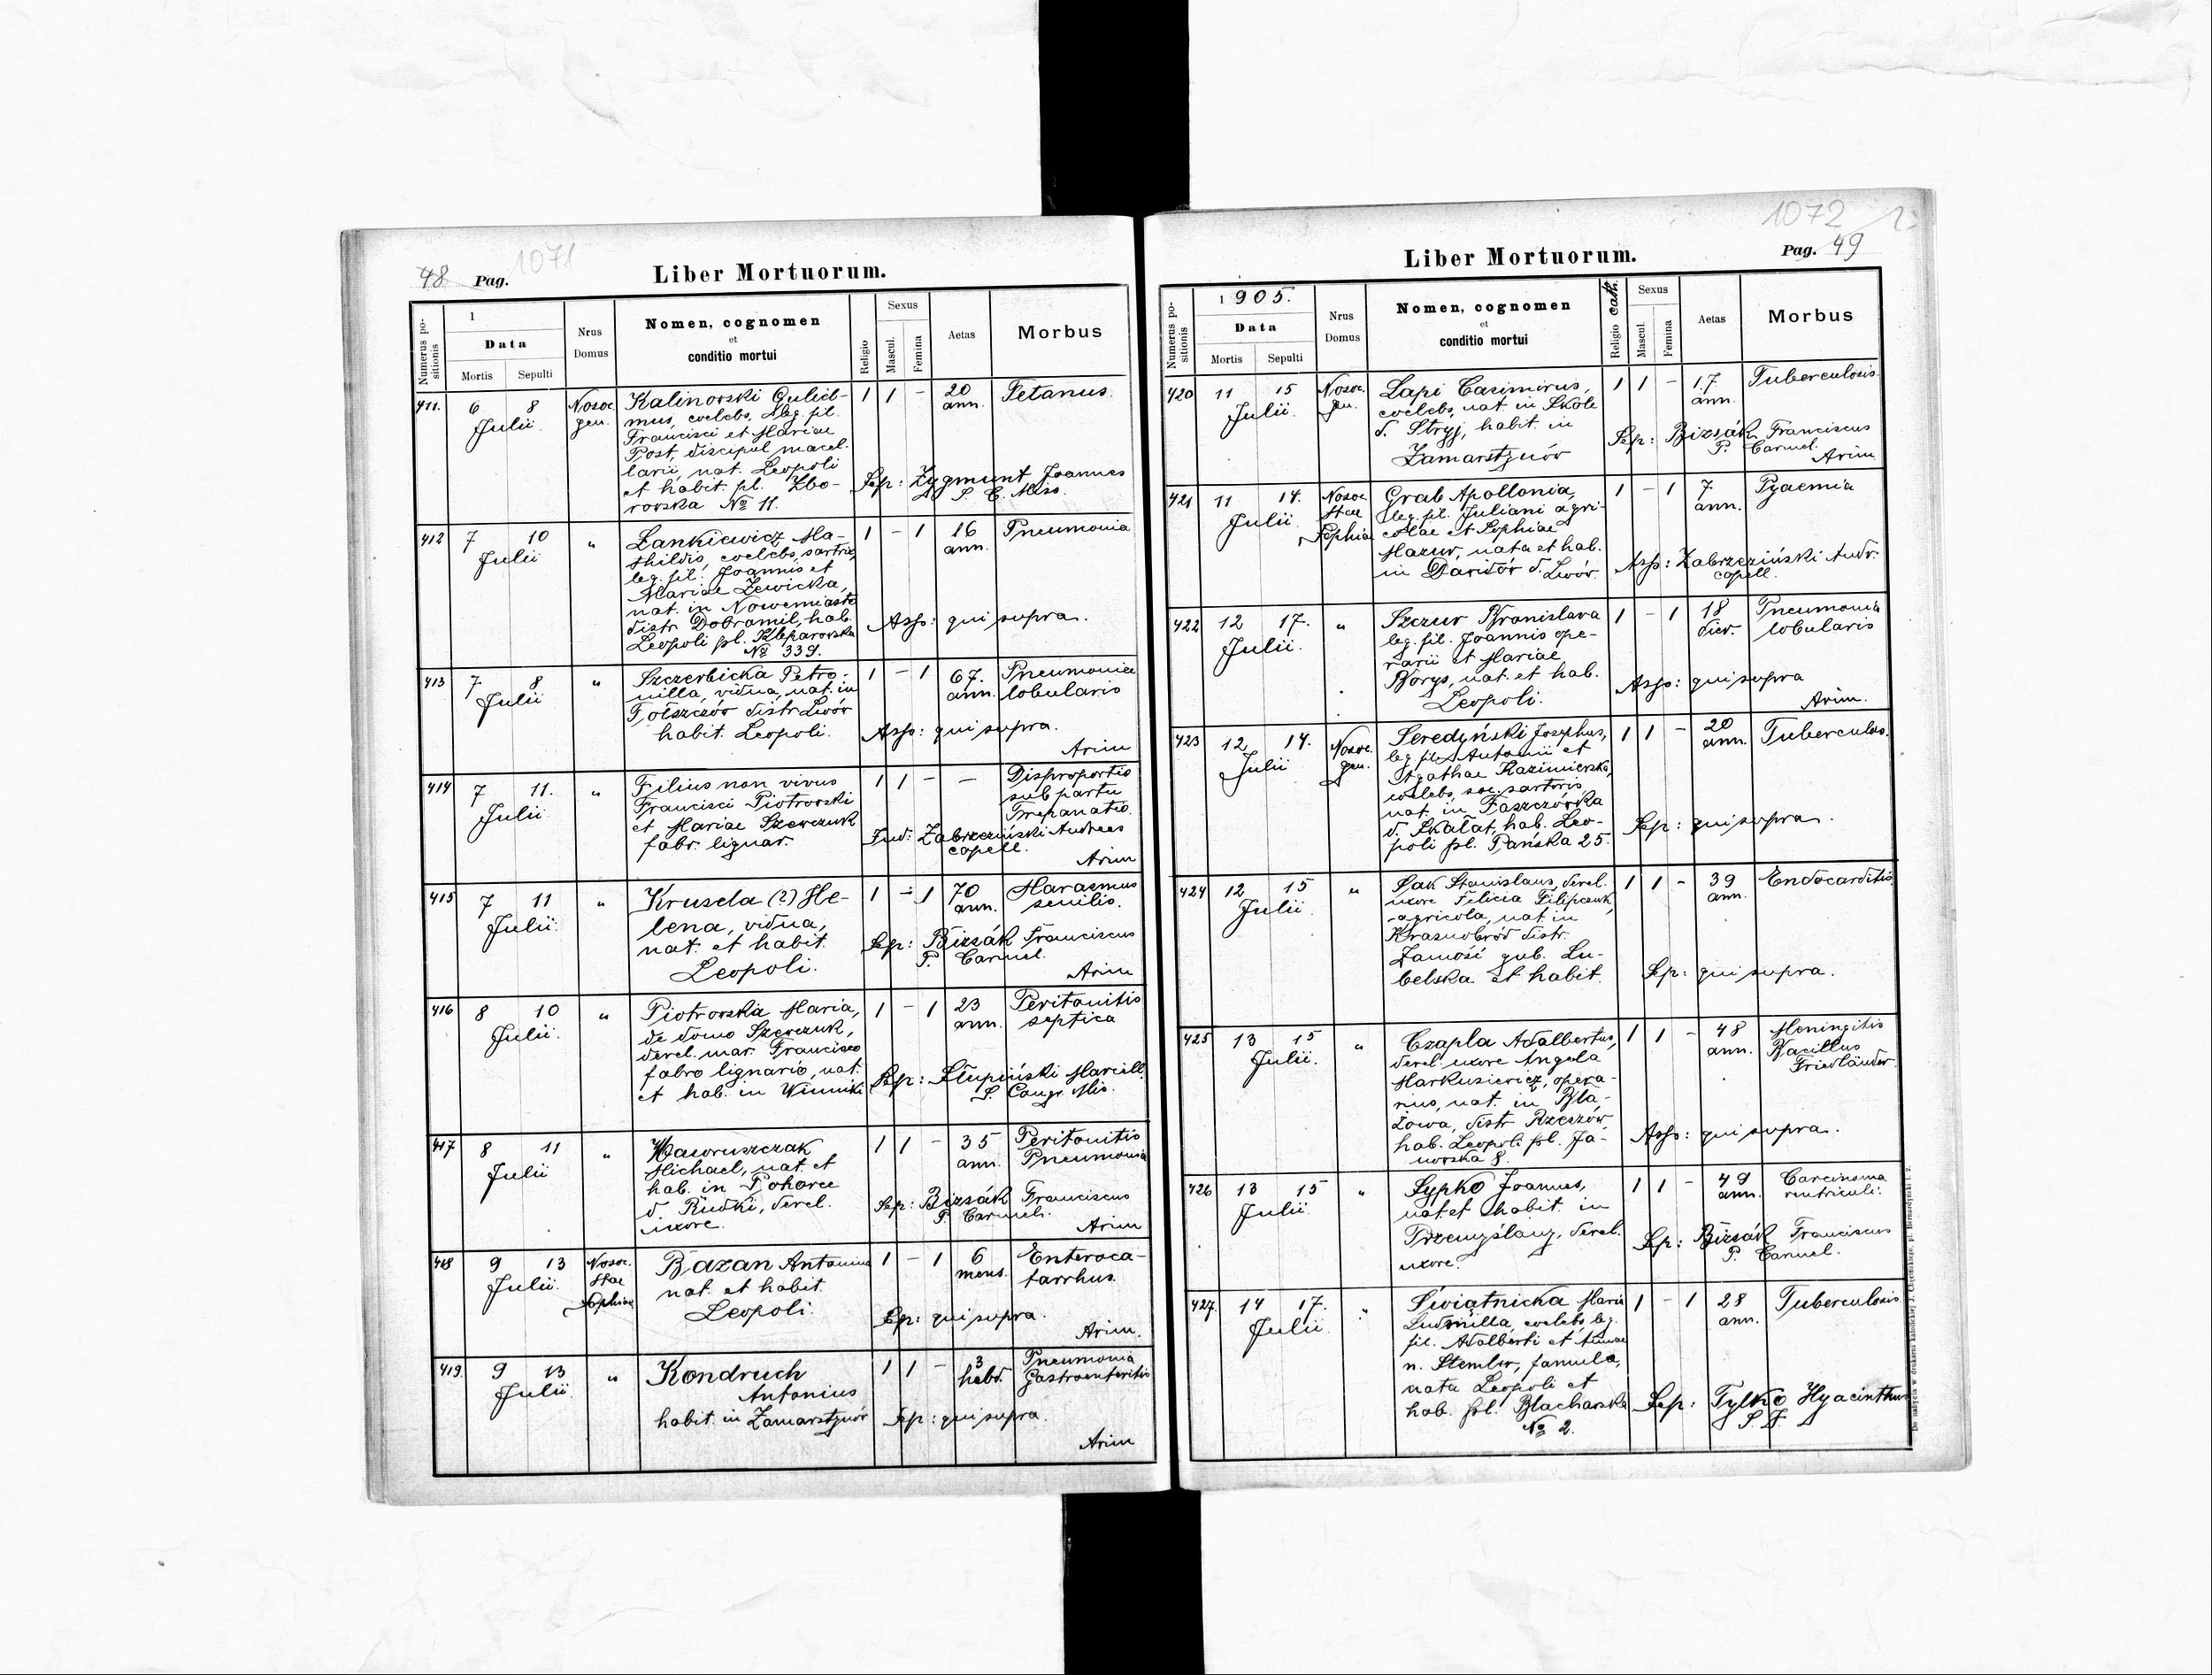 48 Pag. 1071
Liber Mortuorum.
Numerus po-
sitionis
1
Data
Mortis Sepulti
Nrus
Domus
Nomen, cognomen
et
conditio mortui
Religio
Sexus
Mascul. Femina
Aetas
Morbus
411. 6 8 Julii Nosoc. gen.
Kalinowski Guliel-
mus, coelebs, leg. fil.
Francisci et Mariae
Post, discipul macel-
larii, nat. Leopoli
et habit. pl. Zbo-
rowska № 11.
1 1 - 20 ann. Tetanus.
Sep: Zygmunt Joannes
S. C. Miss.
412 7 10 Julii „
Lankiewicz Ma-
thildis, coelebs, sartrix,
leg. fil. Joannis et
Mariae Lewicka,
nat. in Nowemiasto
distr. Dobromil, hab.
Leopoli pl. Kleparowska
№ 339.
1 - 1 16 ann. Pneumonia
Asp: qui supra.
413 7 8 Julii „
Szczerbicka Petro-
nilla, vidua, nat. in
Tołszczów distr. Lwów
habit. Leopoli.
1 - 1 67. ann. Pneumonia
lobularis
Asp: qui supra.
Arim
414 7 11. Julii „
Filius non vivus
Francisci Piotrowski
et Mariae Szewczuk
fabr. lignar.
1 1 - — Disproportio
sub partu
Trepanatio.
Ind: Zabrzeziński Andreas
capell.
Arim
415 7 11 Julii „
Krusela (?) He-
lena, vidua,
nat. et habit.
Leopoli.
1 - 1 70 ann. Marasmus
senilis.
Sep: Bizsák Franciscus
P. Carmel.
Arim
416 8 10 Julii „
Piotrowska Maria,
de domo Szewczuk,
derel. mar. Francisco
fabro lignario, nat.
et hab. in Winniki
1 - 1 23 ann. Peritonitis
septica
Sep: Słupiński Marcell.
S. Congr. Mis.
417 8 11 Julii „
Hawruszczak
Michael, nat. et
hab. in Pohorce
d. Rudki, derel.
uxore.
1 1 - 35 ann. Peritonitis
Pneumonia
Sep: Bizsák Franciscus
P. Carmel.
Arim
418 9 13 Julii Nosoc. Stae Sophiae
Bazan Antonina
nat. et habit.
Leopoli.
1 - 1 6 mens. Enteroca-
tarrhus.
Sep: qui supra.
Arim.
419. 9 13 Julii „
Kondruch
Antonius
habit. in Zamarstynów
1 1 - 3 hebd. Pneumonia
Gastroenteritis
Sep: qui supra.
Arim
1072
Liber Mortuorum.
Pag. 49
Numerus po-
sitionis
1905.
Data
Mortis Sepulti
Nrus
Domus
Nomen, cognomen
et
conditio mortui
Religio cat.
Sexus
Mascul. Femina
Aetas
Morbus
420 11 15 Julii. Nosoc. gen.
Lapi Casimirus,
coelebs, nat. in Skole
d. Stryj, habit. in
Zamarstynów
1 1 - 17 ann. Tuberculosis
Sep: Bizsák Franciscus
P. Carmel.
Arim
421 11 14. Julii. Nosoc. Stae Sophiae
Grab Apollonia,
leg. fil. Juliani agri-
colae et Sophiae
Mazur, nata et hab.
in Dawidów d. Lwów.
1 - 1 7 ann. Pyaemia
Asp: Zabrzeziński Andr.
capell.
422 12 17. Julii. „
Szczur Bronislava
leg. fil. Joannis ope-
rarii et Mariae
Borys, nat. et hab.
Leopoli.
1 - 1 18 dier. Pneumonia
lobularis
Asp: qui supra
Arim.
423 12 14. Julii Nosoc. gen.
Seredyński Josephus,
leg. fil. Antonii et
Agathae Kazimierska,
coelebs, soc. sartoris
nat. in Faszczówka
d. Skałat, hab. Leo-
poli pl. Pańska 25.
1 1 - 20 ann. Tuberculos.
Sep: qui supra.
424 12 15 Julii „
Sak Stanislaus, derel.
uxore Felicia Filipczuk,
agricola, nat. in
Krasnobród distr.
Zamość gub. Lu-
belska et habit.
1 1 - 39 ann. Endocarditis
Sep: qui supra.
425 13 15 Julii. „
Czapla Adalbertus,
derel. uxore Angela
Markusiewicz, opera-
rius, nat. in Bła-
żowa, distr. Rzeszów
hab. Leopoli pl. Ja-
nowska 8.
1 1 - 48 ann. Meningitis
Bacillus
Friedländer.
Asp: qui supra.
426 13 15 Julii „
Sypko Joannes,
nat. et habit. in
Przemyślany, derel.
uxore.
1 1 - 49 ann. Carcinoma
ventriculi.
Sep: Bizsák Franciscus
P. Carmel.
427. 14 17. Julii. „
Świątnicka Maria
Ludmilla, coelebs, leg.
fil. Adalberti et Annae
n. Stemler, famula,
nata Leopoli et
hab. pl. Blacharska
№ 2.
1 - 1 28 ann. Tuberculosis
Sep: Tylko Hyacinthus
S. J.